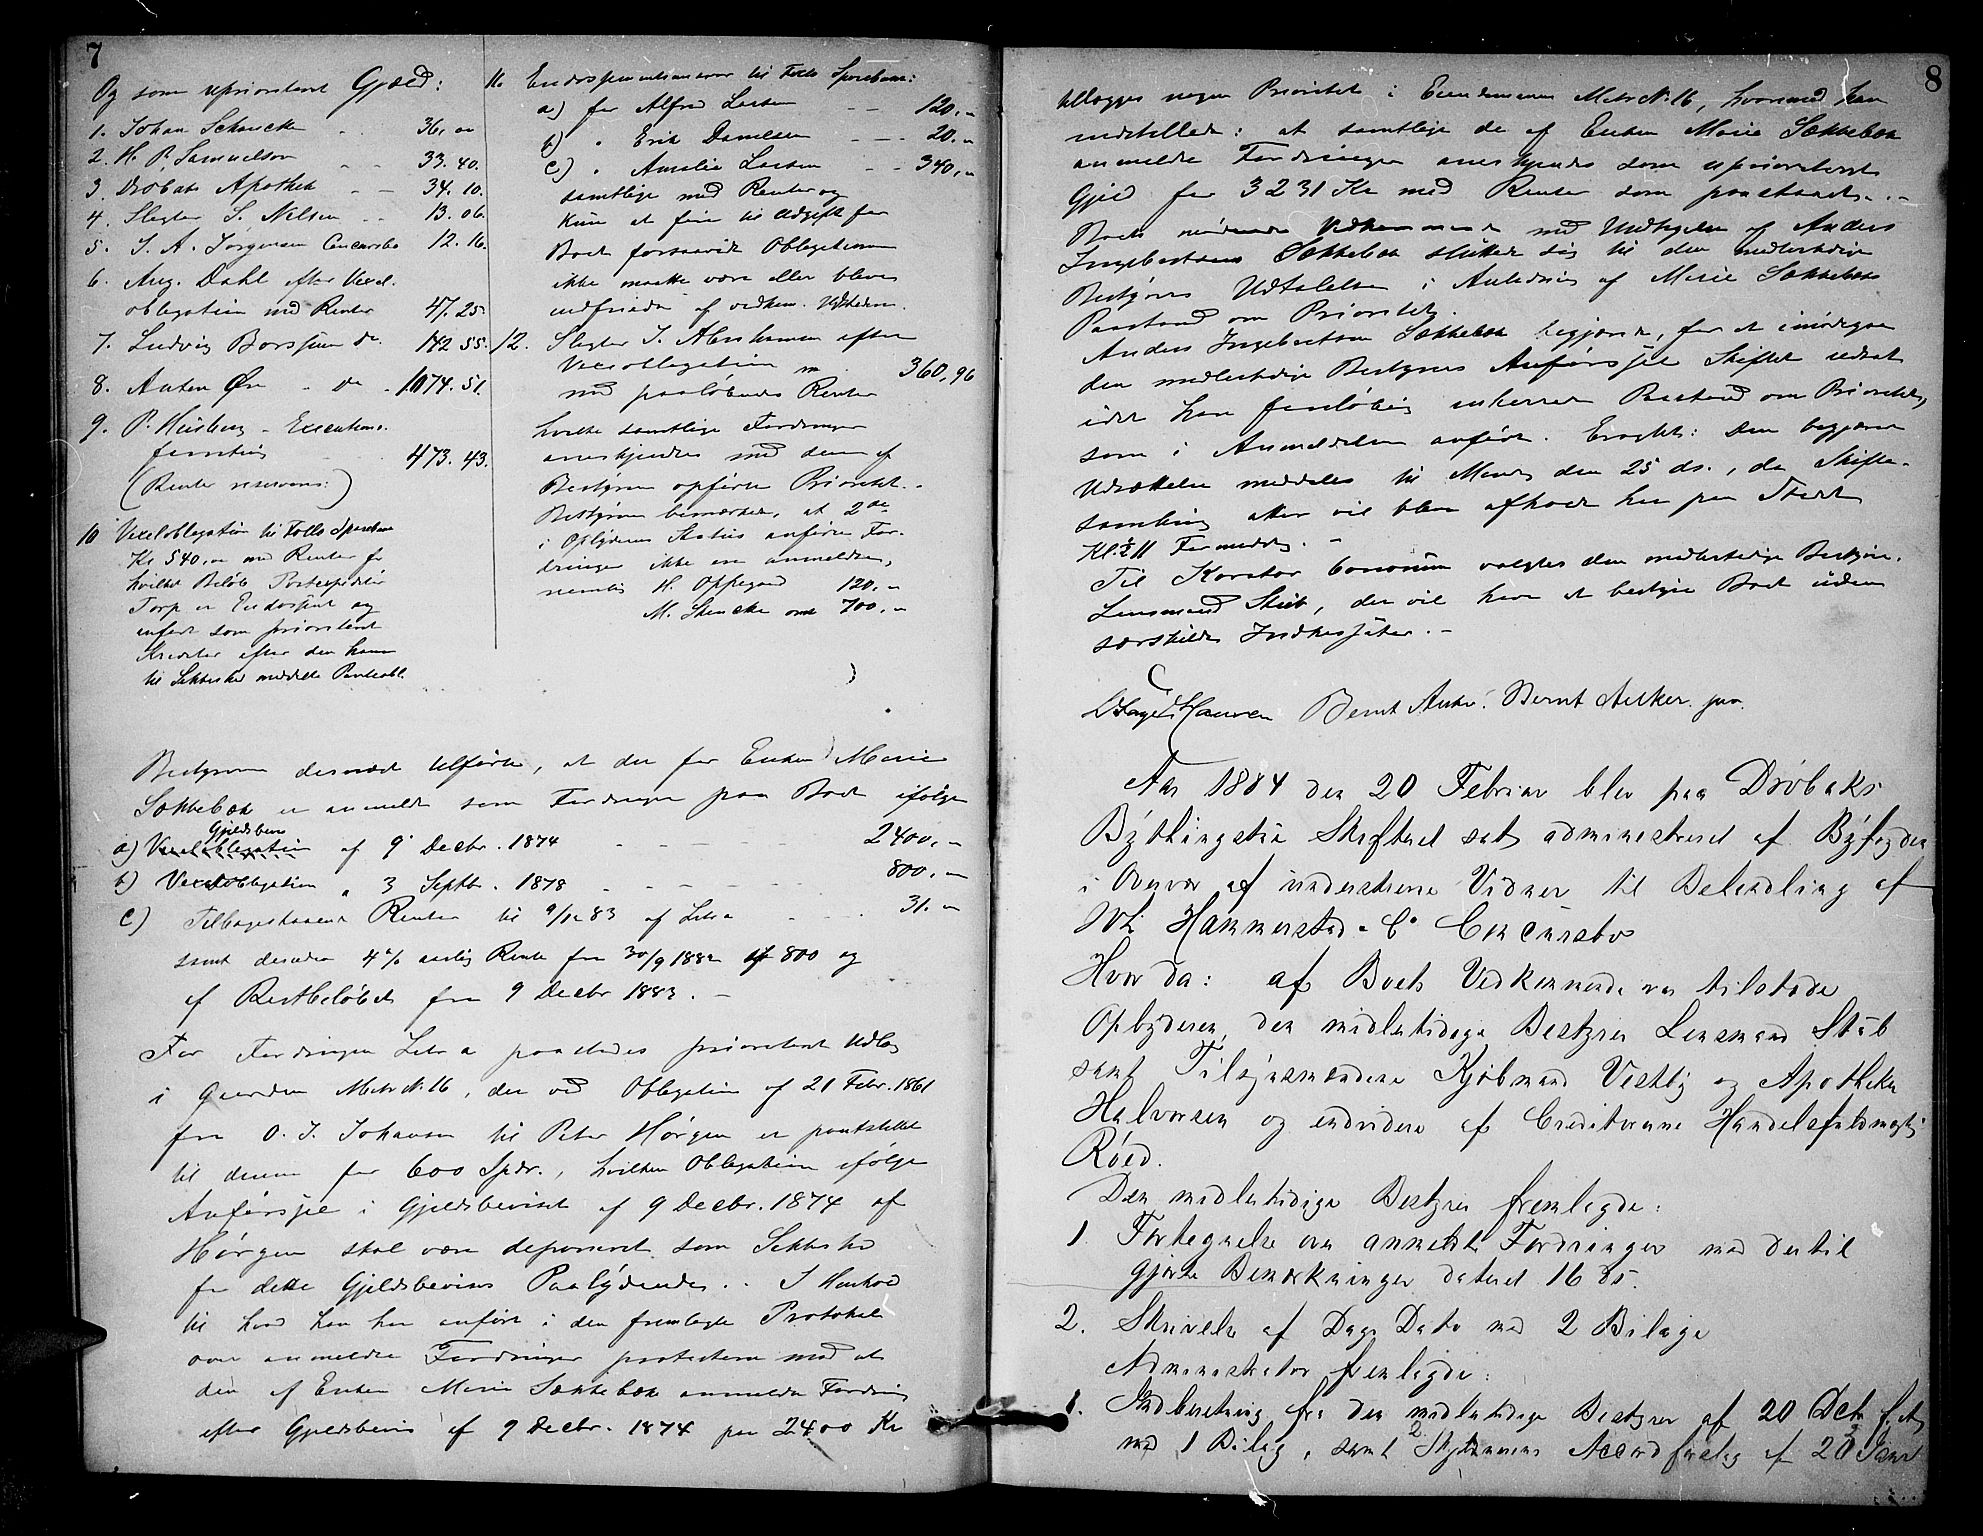 7
Og som uprioriteret Gjæld:
1. Johan Schencke 36,00
2. H. P. Samuelson 33.40.
3. Drøbaks Apothek 34.10.
4. Slagter S. Nilsen 13.06.
5. J. A. Jørgensen Concursbo 12.16.
6. Aug. Dahl efter Vexel-
obligation med Renter 47.25
7. Ludvig Borssum do 142 55.
8. Anton Øre - do - 1074.51.
9. P. Husberg - Executions-
473.43.
(Renter reserveres:)
10 Vexelobligation til Follo Sparebank
Kr 540,00 med Renter for
hvilket Beløb Postexpeditør
Torp er Endossent og
anført som prioriteret
Kreditor efter den ham
til Sikkerhed meddelte Panteobl.
11. til Follo Sparebank:
a) for Alfred Larsen 120,00
b) " Erik Danielsen 20,00
c) " Amalie Larsen 340,00
samtlige med Renter og
kun at føre til Udgift for
Boet forsaavidt Obligationerne
ikke maatte være eller blive
indfriede af vedkom. Udstedere.
12. Slagter J. Abrahamsen efter
Vexelobligation 360,96
med paaløbende Renter
hvilke samtlige Fordringer
anerkjendtes med den af
Bestyreren opførte Prioritet.
Bestyreren bemærkede, at 2de
i Opbyderens Status anførte For-
dringer ikke ere anmeldte,
nemlig H. Oppegaard 120,00
M. Schencke 700,00
Bestyreren dernæst tilførte, at der for Enken Marie
Sækkebæk er anmeldt som Fordringer paa Boet ifølge
Gjeldsbev
a) Vexelobligation af 9 Decbr. 1874 2400,00
b) Vexelobligation " 3 Septb. 1878 800,00
c) Tilbagestaaende Renter til 9/12 83 af Litr a 31,00
samt desuden 4% aarlig Rente fra 30/9 1882 af 800 og
af Restbeløbet fra 9 Decbr 1883. -
For Fordringen Litr a paastodes prioriteret Udlæg
i Gaarden Matr N. 16, der ved Obligation af 21 Febr. 1861
fra O. J. Johansen til Peter Hørgen er pantstillet
til denne for 600 Spdr., hvilken Obligation ifølge
Anførsel i Gjeldsbeviset af 9 Decbr. 1874 af
Hørgen skal være deponeret som Sikkerhed
for dette Gjeldsbevises Paalydende. I Henhold
til hvad han har anført i den fremlagte Protokol
over anmeldte Fordringer protesterer mod at
den af Enken Marie Sækkebæk anmeldte Fordring
efter Gjeldsbevis af 9 Decbr. 1874 paa 2400 Kr
8
tillægges nogen Prioritet i Eiendommen Matr N. 16, hvormod han
indstillede: at samtlige de af Enken Marie Sækkebæk
anmeldte Fordringer anerkjendes som uprioriteret
Gjeld for 3231 Kr med Renter som paastaaet. -
Boets Vedkommende med Undtagelse af Anders
Ingebretsen Sækkebæk sluttede sig til den midlertidige
Bestyrers Udtalelse i Anledning af Marie Sækkebæks
Paastand om Prioritet.
Anders Ingebretsen Sækkebæk begjærte, for at imødegaa
den midlertidige Bestyrers Anførsel Skiftet udsat
idet han foreløbig Paastand om Prioritet,
som i Anmeldelsen anført. Eragtet: Den begjærte
Udsættelse meddeles til Mandag den 25 ds., da Skifte-
samling atter vil blive afholdt her paa Stedet
Kl. 1/2 11 Formiddag. -
Til Kurator bonorum valgtes den midlertidige Bestyrer
Lensmand Stub, der vil have at bestyre Boet uden
særskilte Indkassatør. -
Hansen Bernt Anker. Bernt Anker jun.
Aar 1884 den 20 Februar blev paa Drøbaks
Bythingstue Skifteret sat administreret af Byfogden
i Overvær af underskrevne Vidner til Behandling af
Wt. Hammerstad & Co Concursbo
Hvor da: af Boets Vedkommende var tilstede
Opbyderen, den midlertidige Bestyrer Lensmand Stub
samt Tilsynsmændene Kjøbmand Vestby og Apotheker
Halvorsen og endvidere af Creditorerne Handelsfuldmægtig
Røed.
Den midlertidige Bestyrer fremlagde:
1 Fortegnelse over anmeldte Fordringer med dertil
gjorte Bemærkninger dateret 16 ds.
2. Skrivelse af Dags Dato med 2 Bilage
Administrator fremlagde:
1. Indberetning fra den midlertidige Bestyrer af 20 Decbr f. A.
med 1 Bilag, samt 2 Skyldnerens Accordforslag af 20 Janr